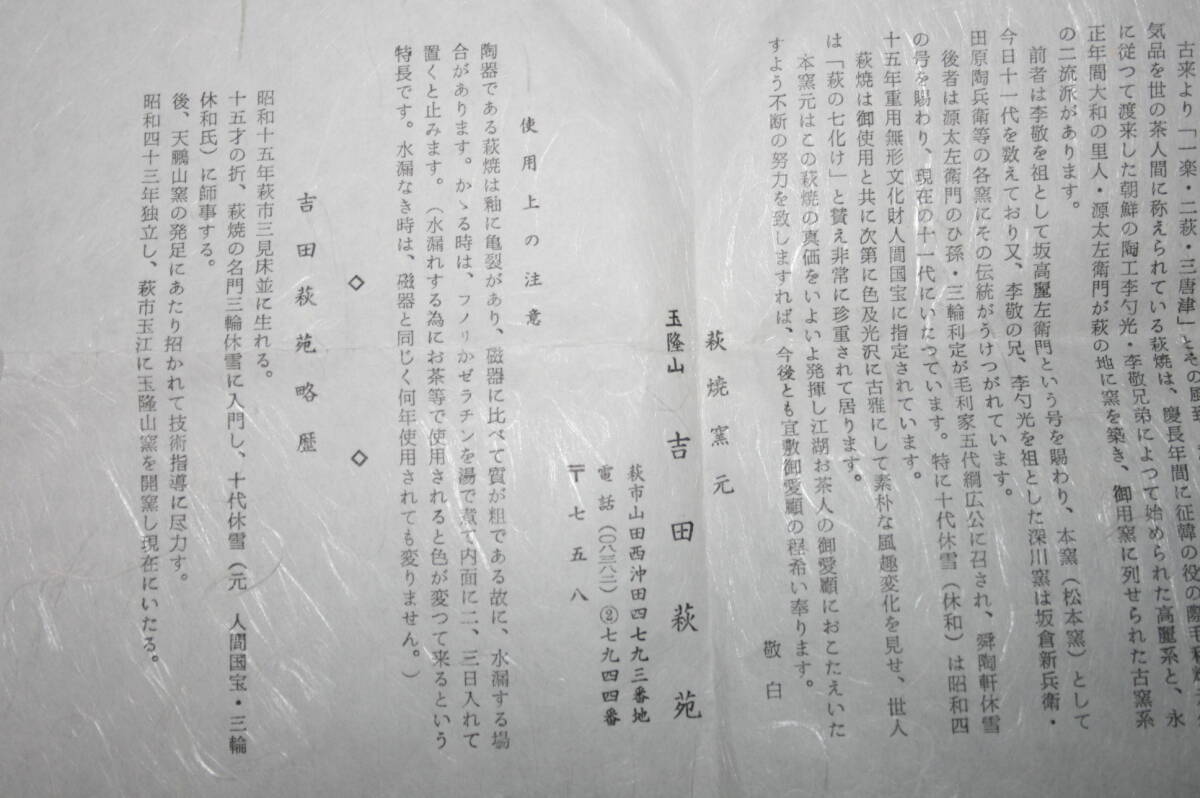 古来より「一楽・二萩・三唐津」とその風
気品を世の茶人間に称えられている萩焼は、慶長年間に征韓の役の際毛利
に従つて渡来した朝鮮の陶工李勺光・李敬兄弟によつて始められた高麗系と、永
正年間大和の里人・源太左衛門が萩の地に窯を築き、御用窯に列せられた古窯系
の二流派があります。
前者は李敬を祖として坂高麗左衛門という号を賜わり、本窯（松本窯）として
今日十一代を数えており又、李敬の兄、李勺光を祖とした深川窯は坂倉新兵衛・
田原陶兵衛等の各窯にその伝統がうけつがれています。
後者は源太左衛門のひ孫・三輪利定が毛利家五代綱広公に召され、舜陶軒休雪
の号を賜わり、現在の十一代にいたつています。特に十代休雪（休和）は昭和四
十五年重用無形文化財人間国宝に指定されています。
萩焼は御使用と共に次第に色及光沢に古雅にして素朴な風趣変化を見せ、世人
は「萩の七化け」と賛え非常に珍重されて居ります。
本窯元はこの萩焼の真価をいよいよ発揮し江湖お茶人の御愛顧におこたえいた
すよう不断の努力を致しますれば、今後とも宜敷御愛顧の程希い奉ります。
敬白
萩焼窯元
玉隆山 吉田萩苑
萩市山田西沖田四七九三番地
電話（〇八三八二）②七九四四番
〒七五八
使用上の注意
陶器である萩焼は釉に亀裂があり、磁器に比べて質が粗である故に、水漏する場
合があります。かゝる時は、フノリかゼラチンを湯で煮て内面に二、三日入れて
置くと止みます。（水漏れする為にお茶等で使用されると色が変つて来るという
特長です。水漏なき時は、磁器と同じく何年使用されても変りません。）
◇ ◇
吉田萩苑略歴
昭和十五年萩市三見床並に生れる。
十五才の折、萩焼の名門三輪休雪に入門し、十代休雪（元 人間国宝・三輪
休和氏）に師事する。
後、天鵬山窯の発足にあたり招かれて技術指導に尽力す。
昭和四十三年独立し、萩市玉江に玉隆山窯を開窯し現在にいたる。